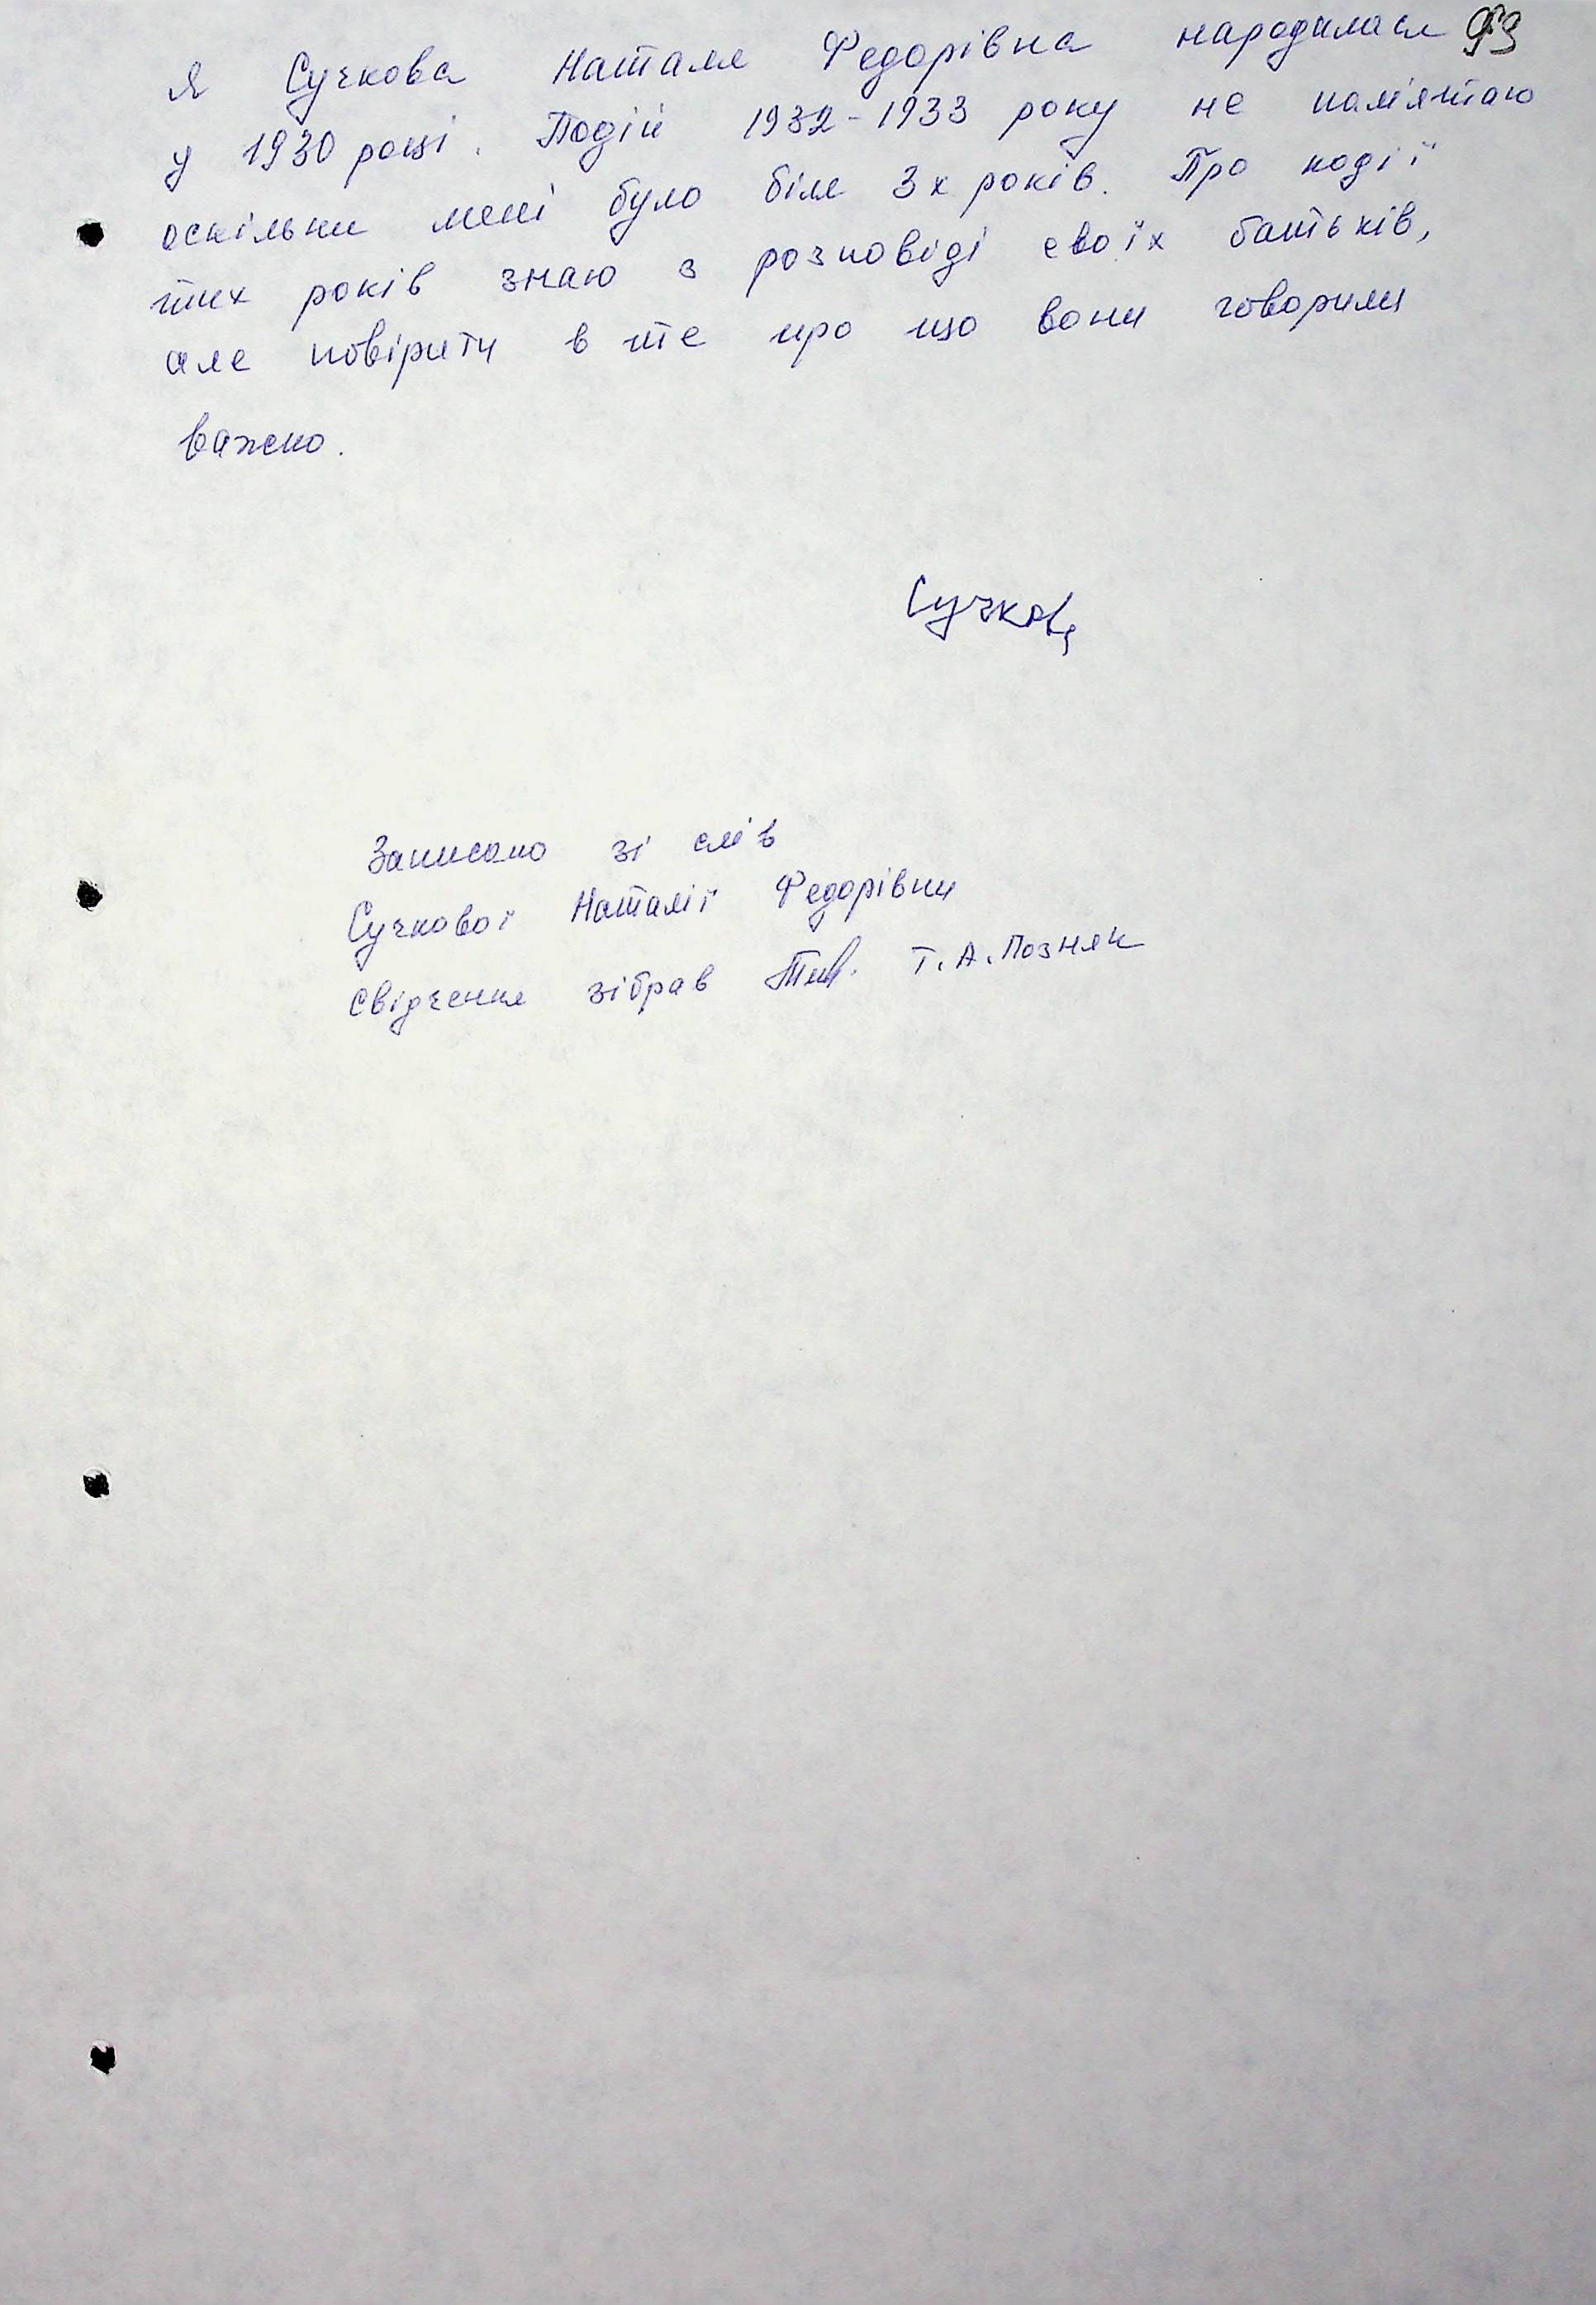 Я Сучкова Наталя Федорівна народилася
у 1930 році. Подій 1932-1933 року не пам'ятаю
оскільки мені було біля 3х років. Про події
тих років знаю з розповіді своїх батьків,
але повірити в те про що вони говорили
важко.
Сучкова
Записано зі слів
Сучкової Наталії Федорівни
свідчення зібрав Т.А. Позняк